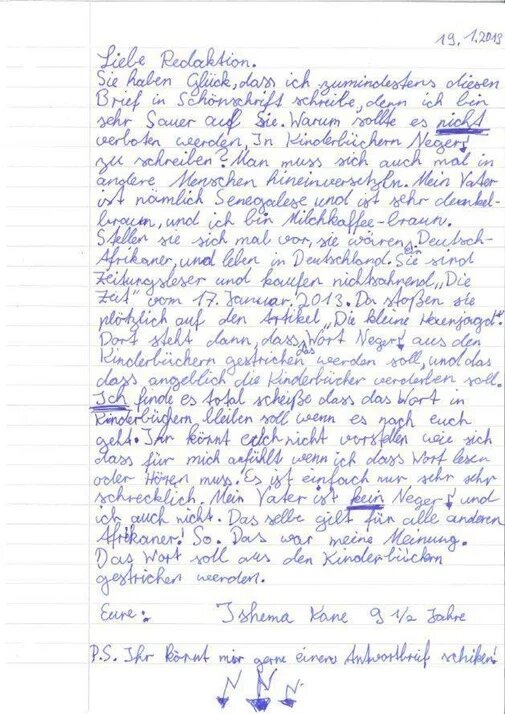 19.1.2013
Liebe Redaktion.
Sie haben Glück, dass ich zumindestens diesen
Brief in Schönschrift schreibe, denn ich bin
sehr Sauer auf Sie. Warum sollte es nicht
verboten werden, In Kinderbüchern Neger
zu schreiben? Man muss sich auch mal in
andere Menschen hineinversetzen. Mein Vater
ist nämlich Senegalese und ist sehr dunkel-
braun, und ich bin Milchkaffee-braun.
Stellen sie sich mal vor, sie wären Deutsch-
Afrikaner, und leben in Deutschland. Sie sind
Zeitungsleser und kaufen nichtsahnend „Die
Zeit" vom 17. Januar. 2013. Da stoßen sie
plötzlich auf den Artikel „Die kleine Hexenjagd".
Dort steht dann, dass das Wort Neger aus den
Kinderbüchern gestrichen werden soll, und das
dass angeblich die Kinderbücher verderben soll.
Ich finde es total scheiße dass das Wort in
Kinderbüchern, bleiben soll wenn es nach euch
geht. Ihr könnt euch nicht vorstellen wie sich
dass für mich anfühlt wenn ich dass Wort lesen
oder Hören muss. Es ist einfach nur sehr sehr
schrecklich. Mein Vater ist kein Neger und
ich auch nicht. Das selbe gilt für alle anderen
Afrikaner! So. Das war meine Meinung.
Das Wort soll aus den Kinderbüchern
gestrichen werden.
Eure: Ishema Kane 9 1/2 Jahre
P.S. Ihr könnt mir gerne einen Antwortbrief schiken!
N N N